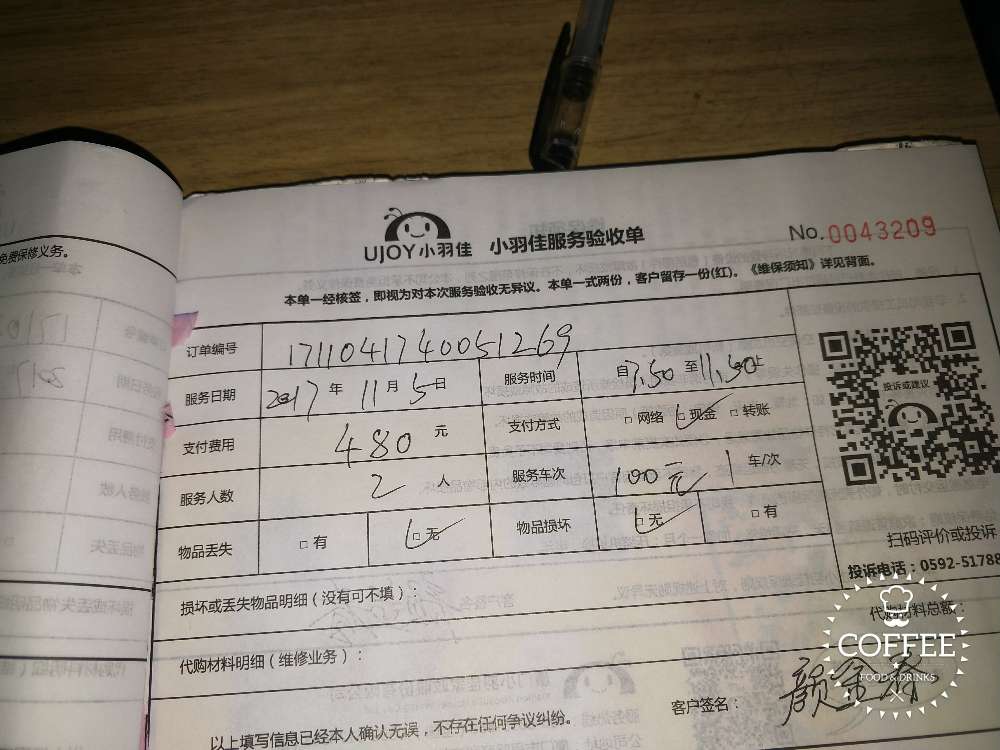 免费保修义务。
UJOY小羽佳 小羽佳服务验收单 No.0043209
本单一经核签，即视为对本次服务验收无异议。本单一式两份，客户留存一份(红)。《维保须知》详见背面。
订单编号 1711041740051269
服务日期 2017年 11月 5日 服务时间 自7.50至11.50止
支付费用 480元 支付方式 □网络 □现金 □转账
服务人数 2人 服务车次 100元 1车/次
物品丢失 □有 □无 物品损坏 □无 □有
投诉或建议
扫码评价或投诉
投诉电话：0592-51788
损坏或丢失物品明细（没有可不填）：
代购材料明细（维修业务）： 代购材料总额：
以上填写信息已经本人确认无误，不存在任何争议纠纷。 客户签名：
COFFEE
FOOD & DRINKS